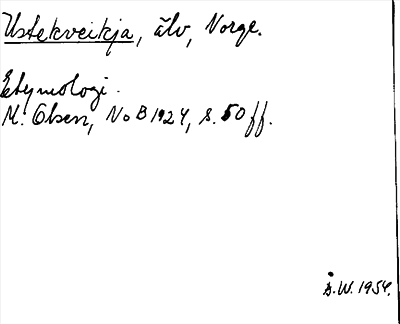 Ustekveikja, älv, Norge.
Etymologi.
M. Olsen, NoB 1924, s. 50 ff.
Å.W. 1954.